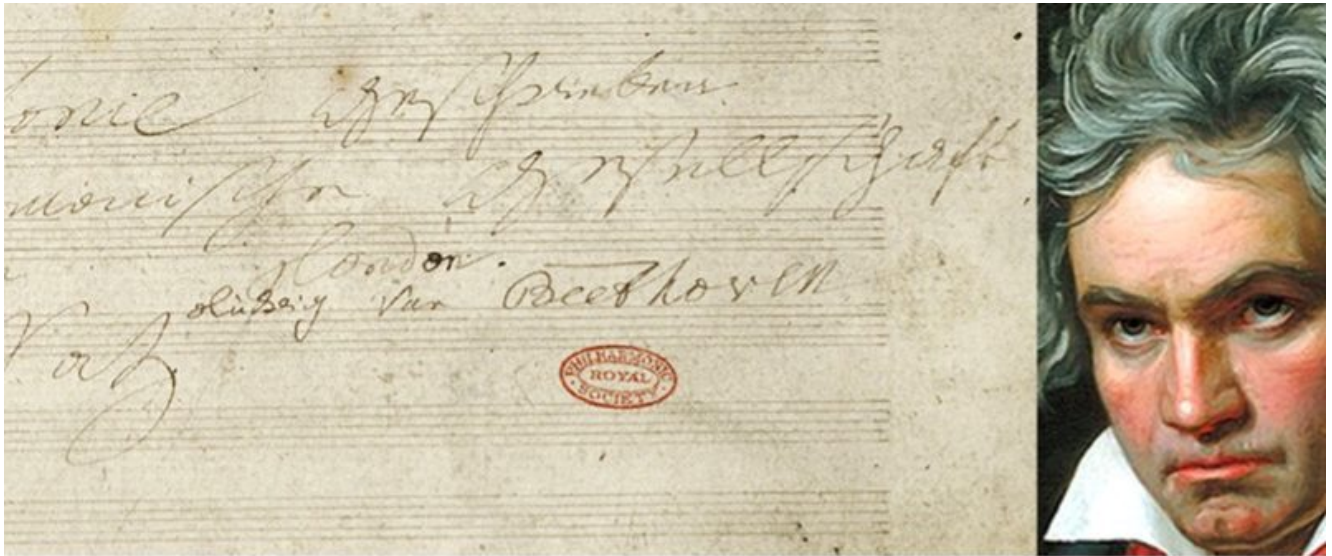 onie Geschrieben
monische Gesellschaft
London.
ludwig van Beethoven
Satz
PHILHARMONIC
ROYAL
SOCIETY